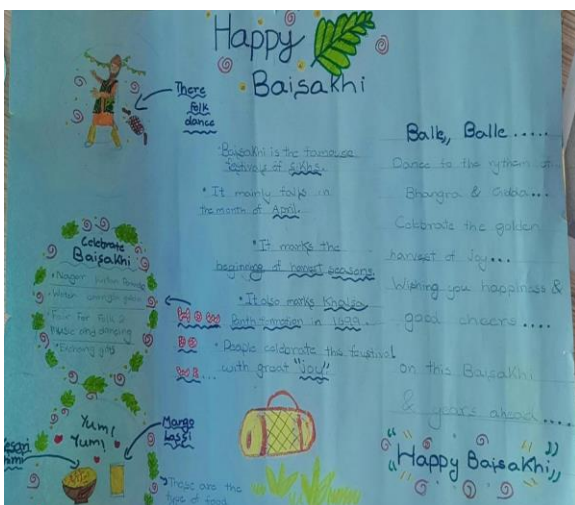 Happy
Baisakhi
There
folk
dance
• Baisakhi is the famouse
festivals of Sikhs.
• It mainly falls in
the month of April.
• It marks the
beginning of harvest seasons
• It also marks Khalsa
Panth formation in 1699.
• People celebrate the faustival
with great "Joy!"
How
do
we...
Celebrate
Baisakhi
• Nagar kirtan
•
• Fair for folk's
music and dancing
• Exchang gifts
Yum!
Yum!
Mango
Lassi
Kesari
These are the
type of food
Balle, Balle .....
Dance to the rythem of..
Bhangra & Gidda...
Celebrate the golden
harvest of Joy...
Wishing you happiness &
good cheers....
on this Baisakhi
& years ahead....
"Happy Baisakhi,,